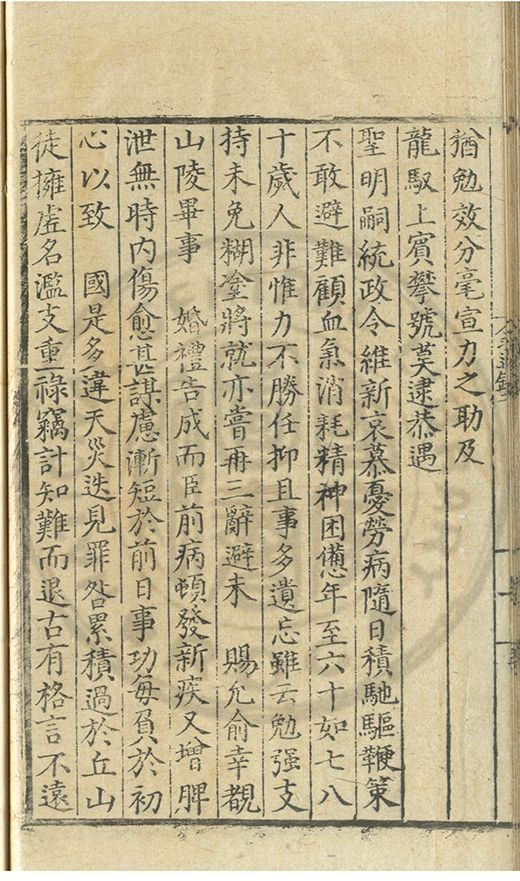 猶勉效分毫宣力之助及
龍馭上賓攀號莫逮恭遇
聖明嗣統政令維新哀慕憂勞病隨日積馳驅鞭策
不敢避難顧血氣消耗精神困憊年至六十如七八
十歲人非惟力不勝任抑且事多遺忘雖云勉强支
持未免糊塗將就亦嘗再三辭避未 賜允俞幸覩
山陵畢事 婚禮告成而臣前病頓發新疾又增脾
泄無時內傷愈甚謀慮漸短於前日事功每負於初
心以致 國是多違天災迭見罪咎累積過於丘山
徒擁虛名濫支重祿竊計知難而退古有格言不遠